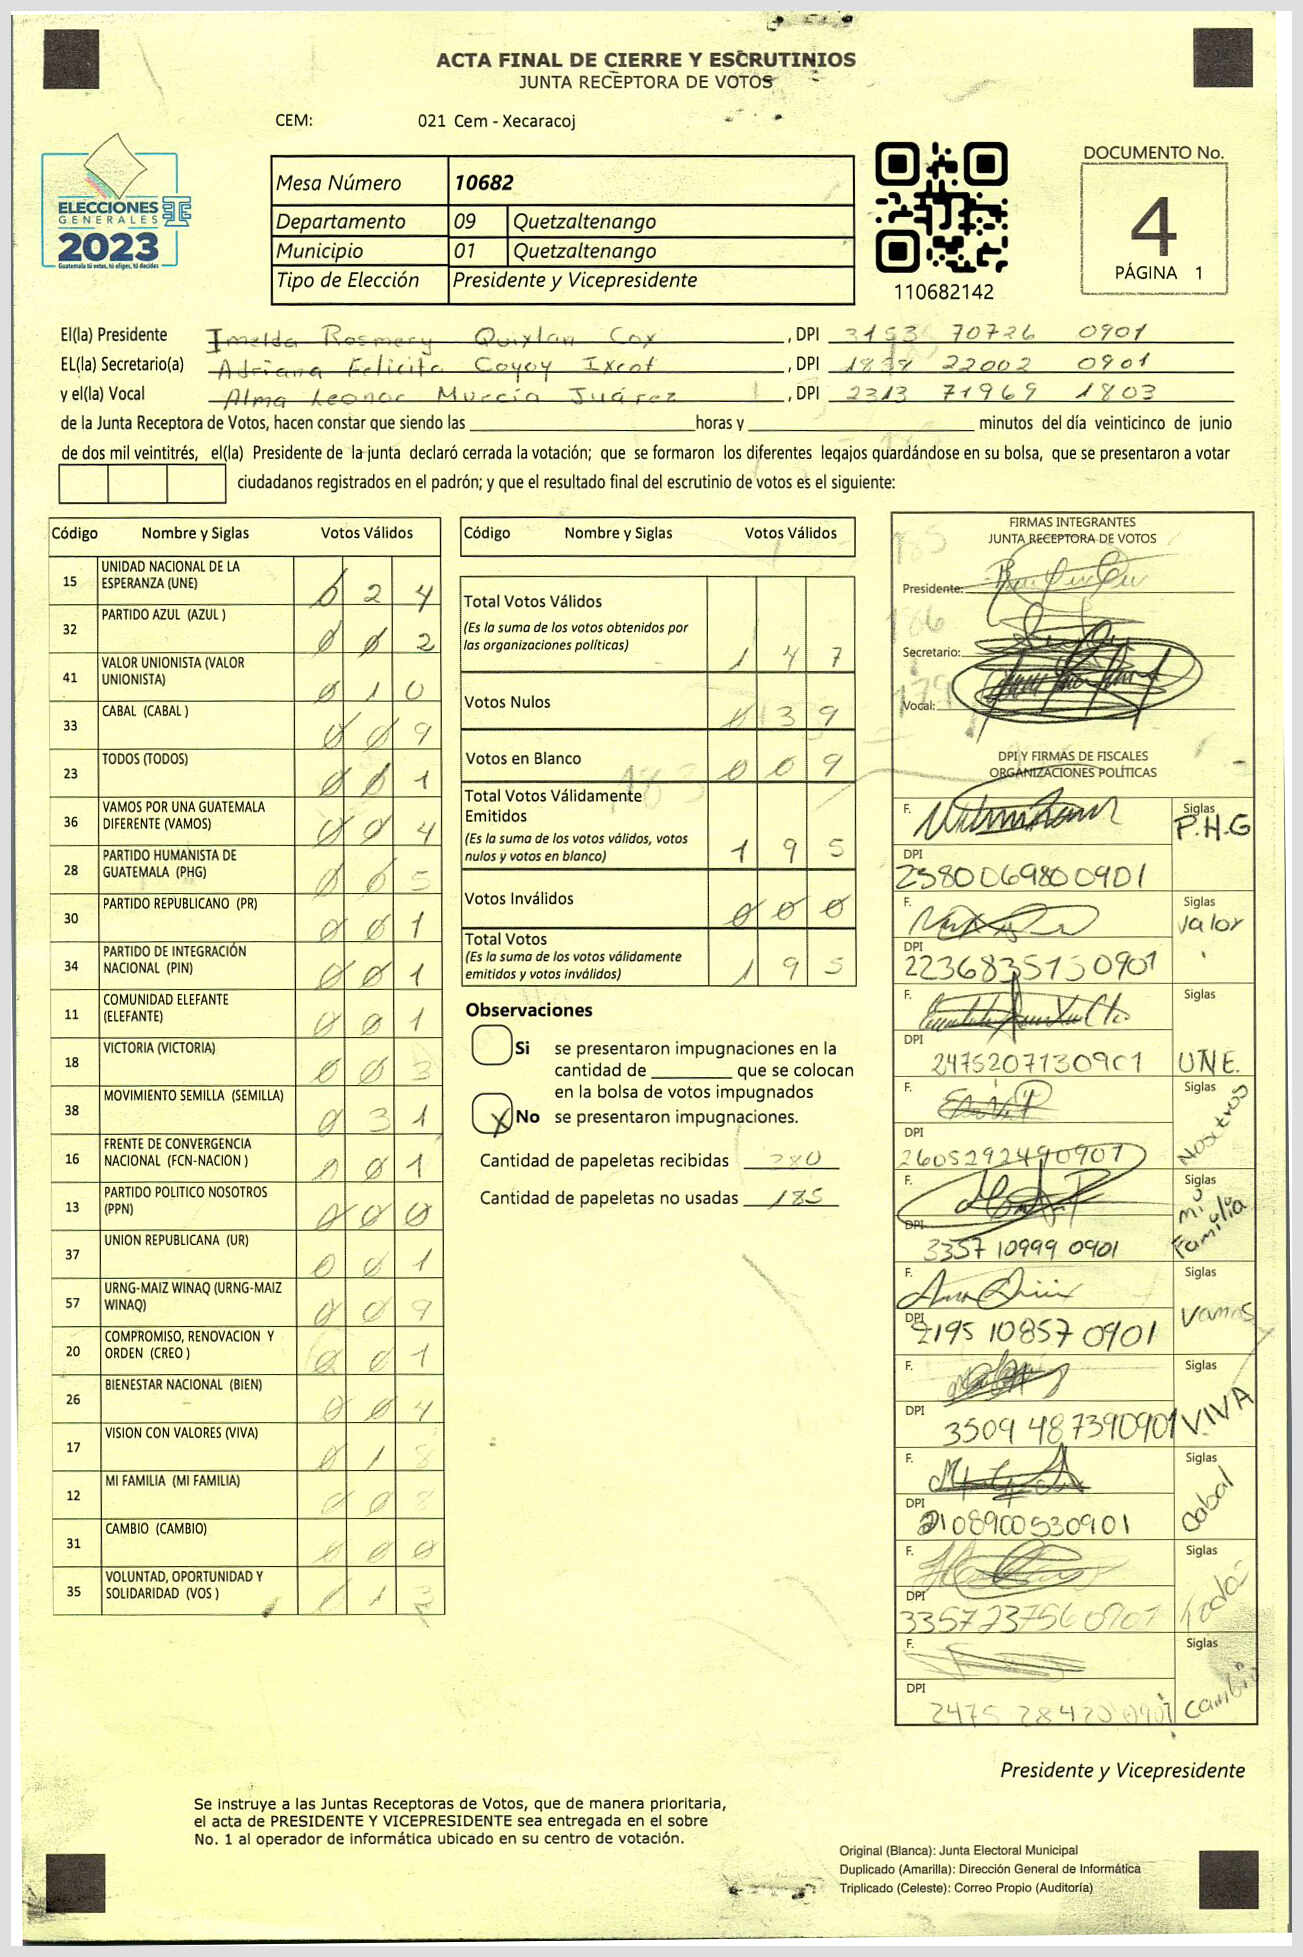 ACTA FINAL DE CIERRE Y ESCRUTINIOS
JUNTA RECEPTORA DE VOTOS
CEM: 021 Cem - Xecaracoj
ELECCIONES
GENERALES
2023
Guatemala tú votas, tú eliges, tú decides
Mesa Número 10682
Departamento 09 Quetzaltenango
Municipio 01 Quetzaltenango
Tipo de Elección Presidente y Vicepresidente
110682142
DOCUMENTO No.
4
PÁGINA 1
El(la) Presidente Imelda Rosmery Quixtan Cox, DPI 3153 70726 0901
EL(la) Secretario(a) Adriana Felicita Coyoy Ixcot, DPI 1839 22002 0901
y el(la) Vocal Alma Leonor Murcia Juárez, DPI 2313 71969 1803
de la Junta Receptora de Votos, hacen constar que siendo las horas y minutos del día veinticinco de junio
de dos mil veintitrés, el(la) Presidente de la junta declaró cerrada la votación; que se formaron los diferentes legajos guardándose en su bolsa, que se presentaron a votar
ciudadanos registrados en el padrón; y que el resultado final del escrutinio de votos es el siguiente:
Código Nombre y Siglas Votos Válidos
15 UNIDAD NACIONAL DE LA ESPERANZA (UNE) 0 2 4
32 PARTIDO AZUL (AZUL ) 0 0 2
41 VALOR UNIONISTA (VALOR UNIONISTA) 0 1 0
33 CABAL (CABAL ) 0 0 9
23 TODOS (TODOS) 0 0 1
36 VAMOS POR UNA GUATEMALA DIFERENTE (VAMOS) 0 0 4
28 PARTIDO HUMANISTA DE GUATEMALA (PHG) 0 0 5
30 PARTIDO REPUBLICANO (PR) 0 0 1
34 PARTIDO DE INTEGRACIÓN NACIONAL (PIN) 0 0 1
11 COMUNIDAD ELEFANTE (ELEFANTE) 0 0 1
18 VICTORIA (VICTORIA) 0 0 3
38 MOVIMIENTO SEMILLA (SEMILLA) 0 3 1
16 FRENTE DE CONVERGENCIA NACIONAL (FCN-NACION ) 0 0 1
13 PARTIDO POLITICO NOSOTROS (PPN) 0 0 0
37 UNION REPUBLICANA (UR) 0 0 1
57 URNG-MAIZ WINAQ (URNG-MAIZ WINAQ) 0 0 9
20 COMPROMISO, RENOVACION Y ORDEN (CREO ) 0 0 1
26 BIENESTAR NACIONAL (BIEN) 0 0 4
17 VISION CON VALORES (VIVA) 0 1 8
12 MI FAMILIA (MI FAMILIA) 0 0 8
31 CAMBIO (CAMBIO) 0 0 0
35 VOLUNTAD, OPORTUNIDAD Y SOLIDARIDAD (VOS )
Código Nombre y Siglas Votos Válidos
Total Votos Válidos 1 4 7
(Es la suma de los votos obtenidos por
las organizaciones políticas)
Votos Nulos 0 3 9
Votos en Blanco 0 0 9
Total Votos Válidamente
Emitidos
(Es la suma de los votos válidos, votos
nulos y votos en blanco) 1 9 5
Votos Inválidos 0 0 0
Total Votos
(Es la suma de los votos válidamente
emitidos y votos inválidos) 1 9 5
Observaciones
Si se presentaron impugnaciones en la
cantidad de que se colocan
en la bolsa de votos impugnados
X No se presentaron impugnaciones.
Cantidad de papeletas recibidas 380
Cantidad de papeletas no usadas 185
FIRMAS INTEGRANTES
JUNTA RECEPTORA DE VOTOS
Presidente:
Secretario:
Vocal:
DPI Y FIRMAS DE FISCALES
ORGANIZACIONES POLÍTICAS
F. Siglas P.H.G
DPI 2580069800901
F. Siglas Valor
DPI 2236835150901
F. Siglas UNE.
DPI 2475207130901
F. Siglas Nosotros
DPI 2605292490901
F. Siglas mi Familia
DPI 3357 10999 0901
F. Siglas Vamos
DPI 2195 10857 0901
F. Siglas VIVA
DPI 3509 487390901
F. Siglas Cabal
DPI 2108900530901
F. Siglas Todos
DPI 3357237560901
F. Siglas Cambio
DPI 2475 28420 0901
Presidente y Vicepresidente
Se instruye a las Juntas Receptoras de Votos, que de manera prioritaria,
el acta de PRESIDENTE Y VICEPRESIDENTE sea entregada en el sobre
No. 1 al operador de informática ubicado en su centro de votación.
Original (Blanca): Junta Electoral Municipal
Duplicado (Amarilla): Dirección General de Informática
Triplicado (Celeste): Correo Propio (Auditoría)